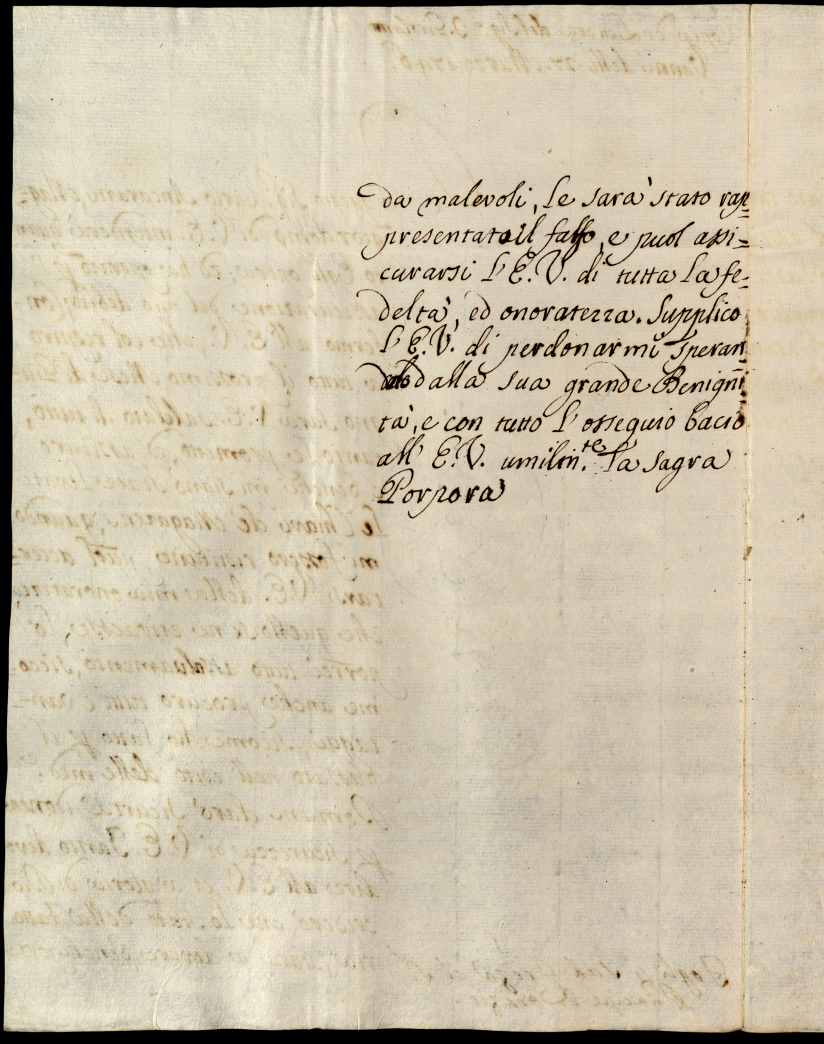 da malevoli, le sara' stato rap=
presentato il falso, e puol assi=
curarsi l'E.V. di tutta la fe=
delta', ed onoratezza. Supplico
l'E.V. di perdonarmi speran
dalla sua grande Benigni
ta', e con tutto l'ossequio bacio
all' E.V. umilm.te la sagra
Porpora